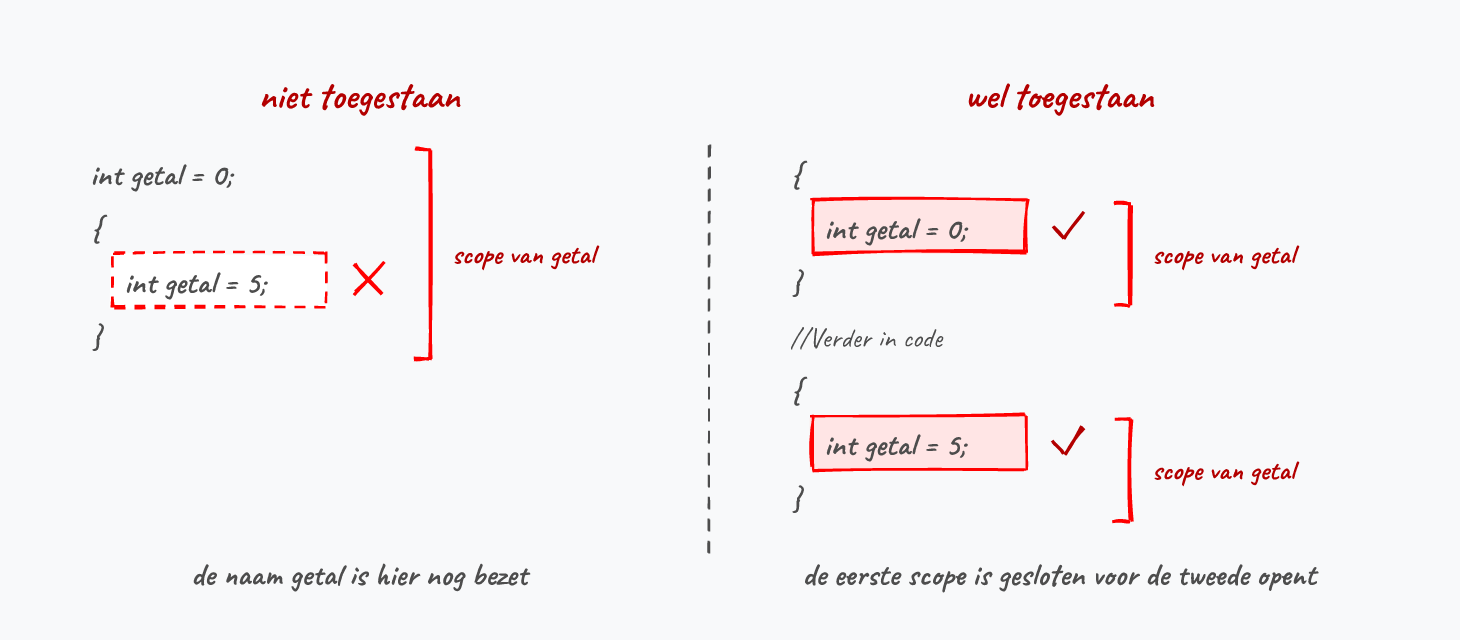 niet toegestaan
int getal = 0;
{
int getal = 5;
}
scope van getal
de naam getal is hier nog bezet
wel toegestaan
{
int getal = 0;
}
scope van getal
//Verder in code
{
int getal = 5;
}
scope van getal
de eerste scope is gesloten voor de tweede opent